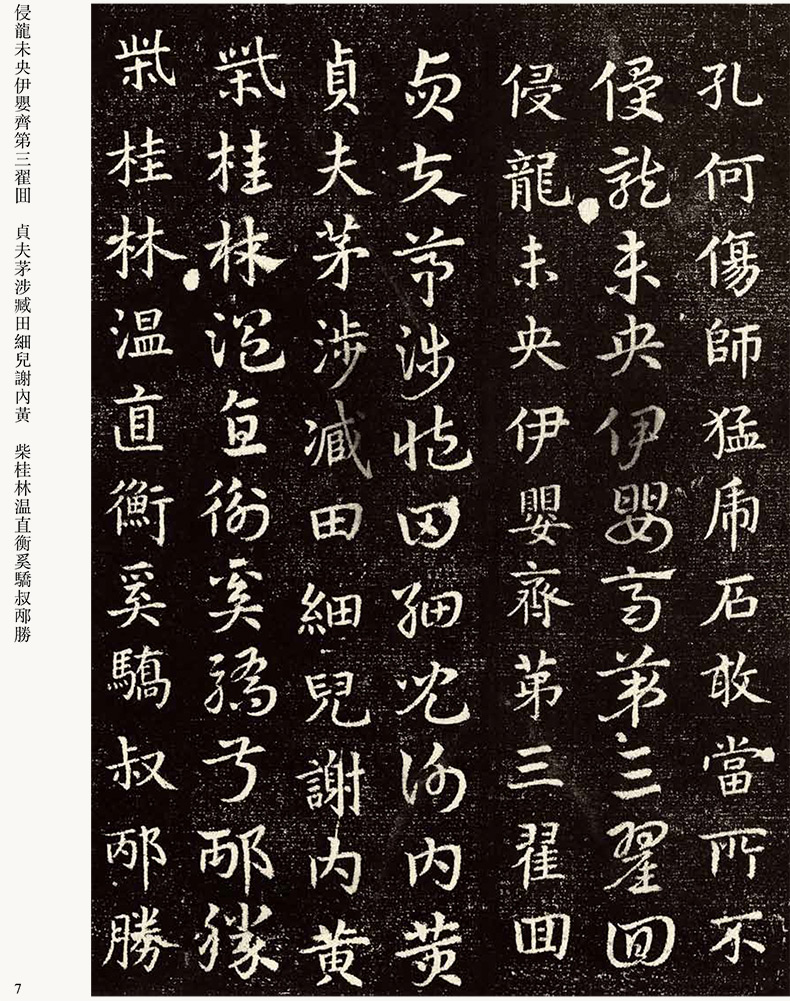 孔何傷師猛虎石敢當所不
侵龍未央伊嬰齊第三翟囬
侵龍未央伊嬰齊第三翟囬
貞夫茅涉臧田細兒謝内黄
貞夫茅涉減田細兒謝内黄
柴桂林温直衡奚驕叔邴勝
柴桂林温直衡奚驕叔邴勝
侵龍未央伊嬰齊第三翟囬 貞夫茅涉臧田細兒謝内黄 柴桂林温直衡奚驕叔邴勝
7